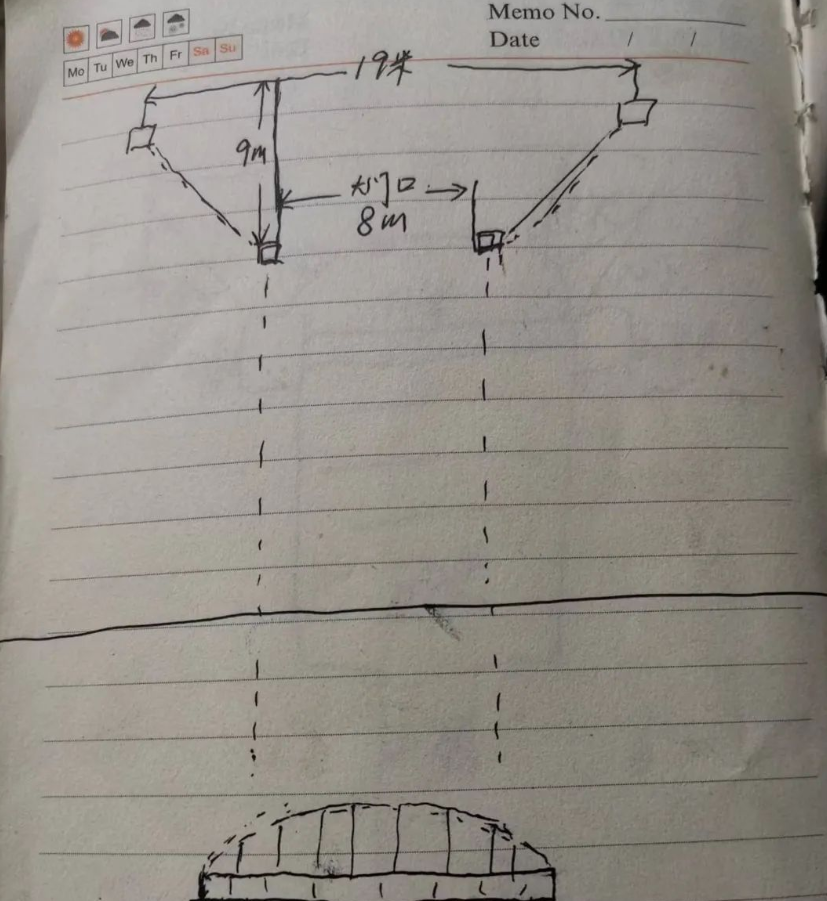 Memo No.
Date / /
Mo Tu We Th Fr Sa Su
19米
9m
大门口
8m